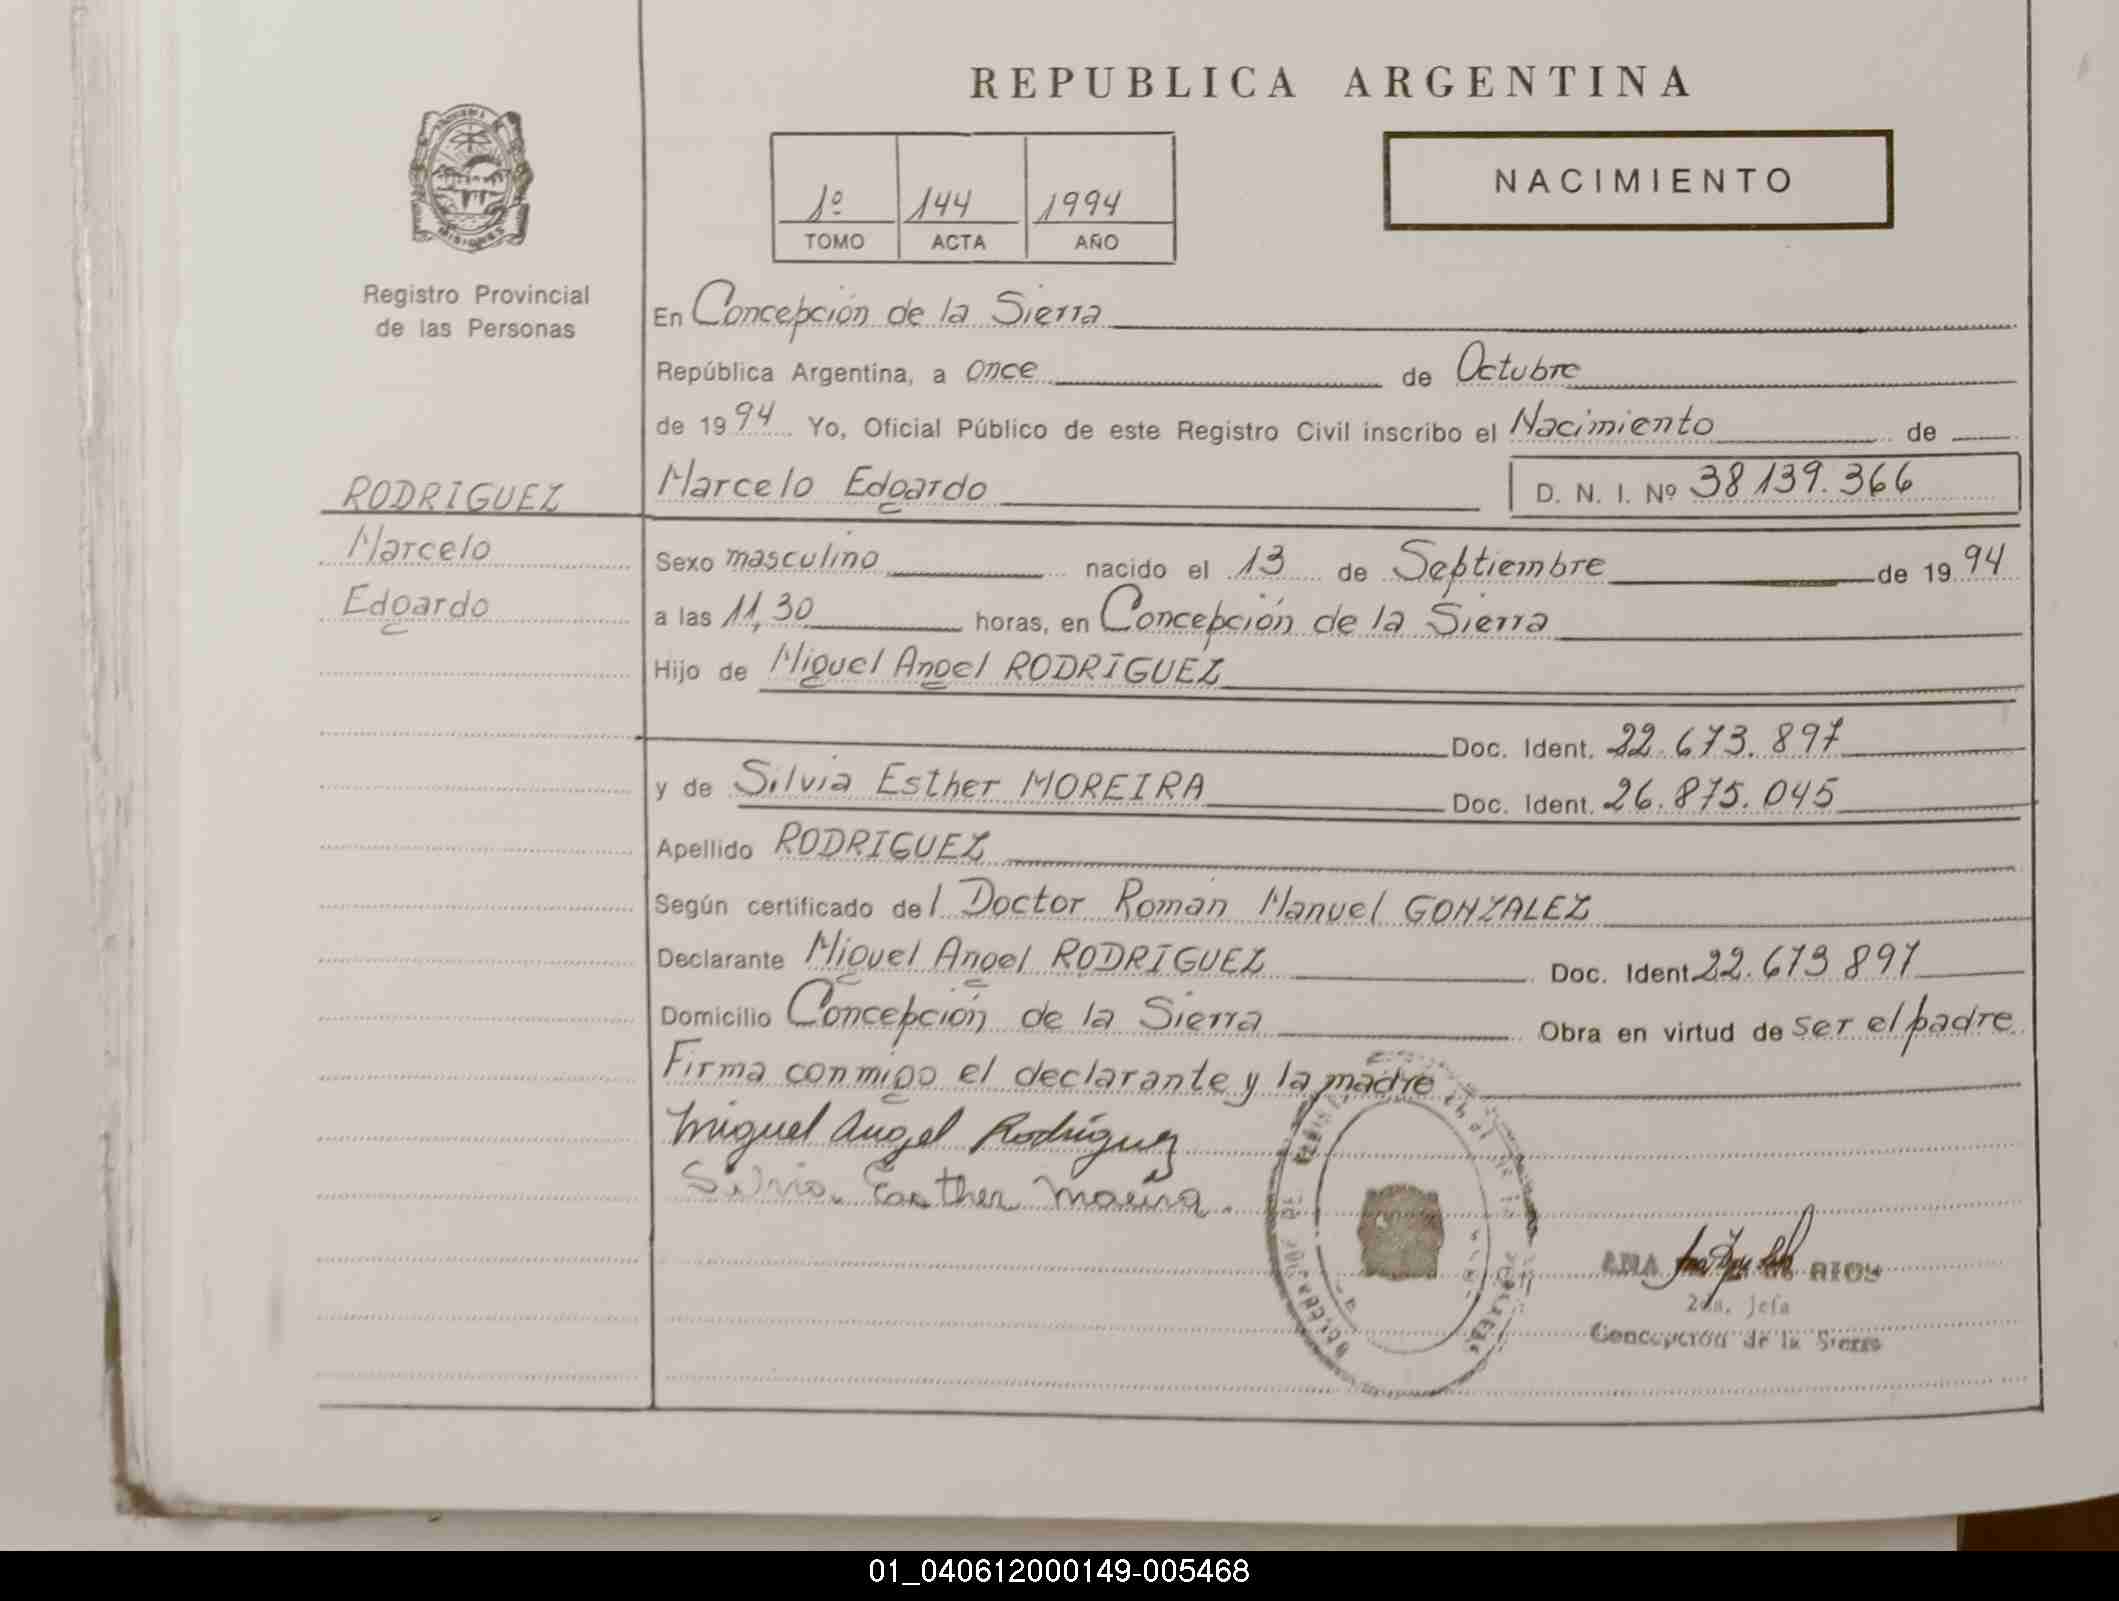 REPUBLICA ARGENTINA
NACIMIENTO
1º 144 1994
TOMO ACTA AÑO
MISIONES
Registro Provincial
de las Personas
En Concepción de la Sierra
República Argentina, a once de Octubre
de 1994 Yo, Oficial Público de este Registro Civil inscribo el Nacimiento de
RODRIGUEZ
Marcelo
Edgardo
Marcelo Edgardo D. N. I. Nº 38139.366
Sexo masculino nacido el 13 de Septiembre de 1994
a las 11,30 horas, en Concepción de la Sierra
Hijo de Miguel Angel RODRIGUEZ
Doc. Ident. 22.673.897
y de Silvia Esther MOREIRA Doc. Ident. 26.875.045
Apellido RODRIGUEZ
Según certificado del Doctor Román Manuel GONZALEZ
Declarante Miguel Angel RODRIGUEZ Doc. Ident. 22.673897
Domicilio Concepción de la Sierra Obra en virtud de ser el padre
Firma conmigo el declarante y la madre
Miguel Angel Rodriguez
Silvia Esther Moreira.
ANA de RIOS
2da. Jefa
Concepción de la Sierra
01_040612000149-005468